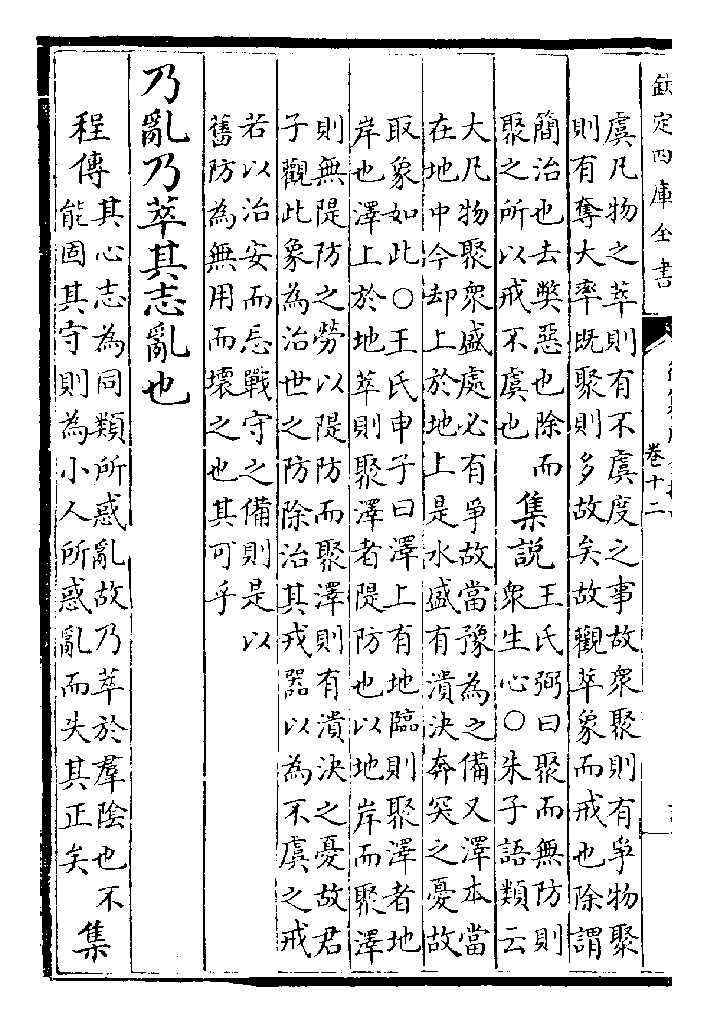 欽定四庫全書
卷十二
虞凡物之萃則有不虞度之事故衆聚則有爭物聚
則有奪大率既聚則多故矣故觀萃象而戒也除謂
簡治也去獘惡也除而
聚之所以戒不虞也
集說
王氏弼曰聚而無防則
衆生心○朱子語類云
大凡物聚衆盛處必有爭故當豫為之備又澤本當
在地中今却上於地上是水盛有潰決奔突之憂故
取象如此○王氏申子曰澤上有地臨則聚澤者地
岸也澤上於地萃則聚澤者隄防也以地岸而聚澤
則無隄防之勞以隄防而聚澤則有潰決之憂故君
子觀此象為治世之防除治其戎器以為不虞之戒
若以治安而忘戰守之備則是以
舊防為無用而壞之也其可乎
乃亂乃萃其志亂也
程傳
其心志為同類所惑亂故乃萃於羣陰也不
能固其守則為小人所惑亂而失其正矣
集